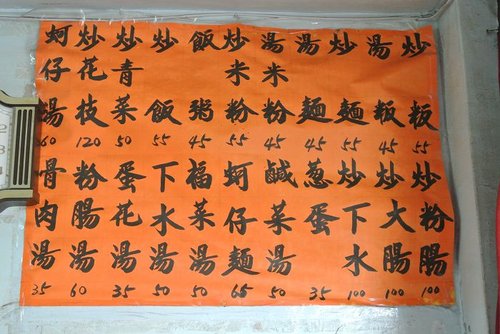 炒粄 55
湯粄 45
炒麵 55
湯麵 45
湯米粉 45
炒米粉 55
飯粥 45
炒飯 55
炒青菜 50
炒花枝 120
蚵仔湯 60
炒粉腸 100
炒大腸 100
炒下水 100
葱蛋 35
鹹菜湯 50
蚵仔麵 65
福菜湯 50
下水湯 50
蛋花湯 35
粉腸湯 60
骨肉湯 35